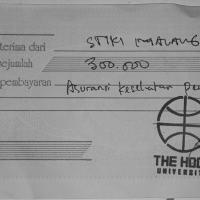 terima dari STIKI MALANG
sejumlah 300.000
pembayaran Asuransi Kesehatan
THE HOO
UNIVERSIT